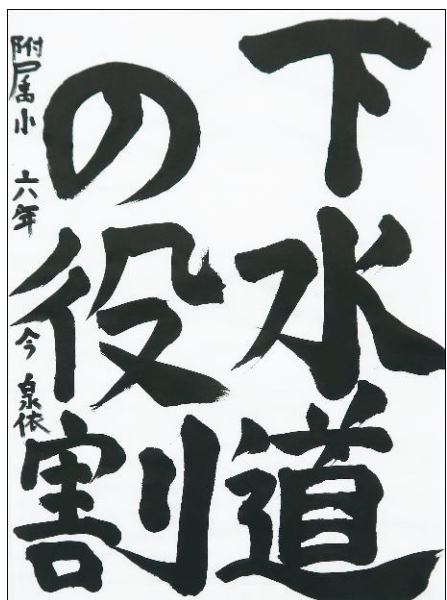 下水道
の役割
附属小 六年 今 泉依